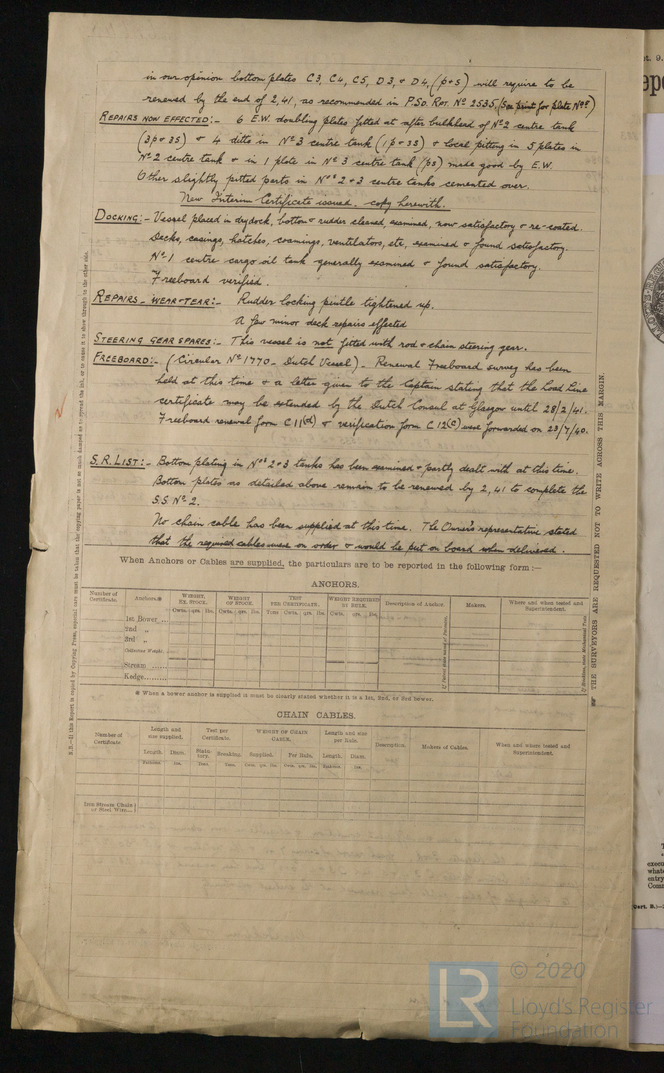 in our opinion bottom plates C3, C4, C5, D3, & D4, (p+s) will require to be
renewed by the end of 2,41, as recommended in P.S.O. Rot. Nº 2535. (See print for plate Nºs)
REPAIRS NOW EFFECTED:- 6 E.W. doubling plates fitted at after bulkhead of Nº2 centre tank
(3p + 3s) & 4 ditto in Nº3 centre tank (1p + 3s) & local pitting in 5 plates in
Nº2 centre tank & in 1 plate in Nº 3 centre tank (ps) made good by E.W.
Other slightly pitted parts in Nºs 2 & 3 centre tanks cemented over.
New Interim Certificate issued. copy herewith.
DOCKING:- Vessel placed in drydock, bottom & rudder cleaned, examined, now satisfactory & re-coated.
Decks, casings, hatches, coamings, ventilators, etc, examined & found satisfactory.
Nº 1 centre cargo oil tank generally examined & found satisfactory.
Freeboard verified.
REPAIRS - WEAR & TEAR:- Rudder locking pintle tightened up.
A few minor deck repairs effected
STEERING GEAR SPARES:- This vessel is not fitted with rod & chain steering gear.
FREEBOARD:- (Circular Nº 1770 - Dutch Vessel) - Renewal Freeboard survey has been
held at this time & a letter given to the Captain stating that the Load Line
certificate may be extended by the Dutch Consul at Glasgow until 28/2/41.
Freeboard renewal form C11(d) & verification form C12(c) were forwarded on 23/7/40.
S.R. LIST:- Bottom plating in Nºs 2 & 3 tanks has been examined & partly dealt with at this time.
Bottom plates as detailed above remain to be renewed by 2,41 to complete the
S.S Nº 2.
No chain cable has been supplied at this time. The Owner's representative stated
that the required cables were on order & would be put on board when delivered.
When Anchors or Cables are supplied, the particulars are to be reported in the following form:—
ANCHORS.
Number of Certificate.
Anchors.*
WEIGHT, EX. STOCK.
WEIGHT OF STOCK.
TEST PER CERTIFICATE.
WEIGHT REQUIRED BY RULE.
Description of Anchor.
Makers.
Where and when tested and Superintendent.
Cwts. qrs. lbs.
Cwts. qrs. lbs.
Tons Cwts. qrs. lbs.
Cwts. qrs. lbs.
1st Bower
2nd „
3rd „
Collective Weight
Stream
Kedge
* When a bower anchor is supplied it must be clearly stated whether it is a 1st, 2nd, or 3rd bower.
CHAIN CABLES.
Number of Certificate
Length and size supplied.
Test per Certificate.
WEIGHT OF CHAIN CABLE.
Length and size per Rule.
Description.
Makers of Cables.
When and where tested and Superintendent.
Length. Diam. Statutory. Breaking. Supplied. Per Rule. Length. Diam.
Fathoms. Ins. Tons. Tons. Cwts. qrs. lbs. Cwts. qrs. lbs. Fathoms. Ins.
Iron Stream Chain or Steel Wire
THE SURVEYORS ARE REQUESTED NOT TO WRITE ACROSS THIS MARGIN.
LR
© 2020
Lloyd's Register
Foundation